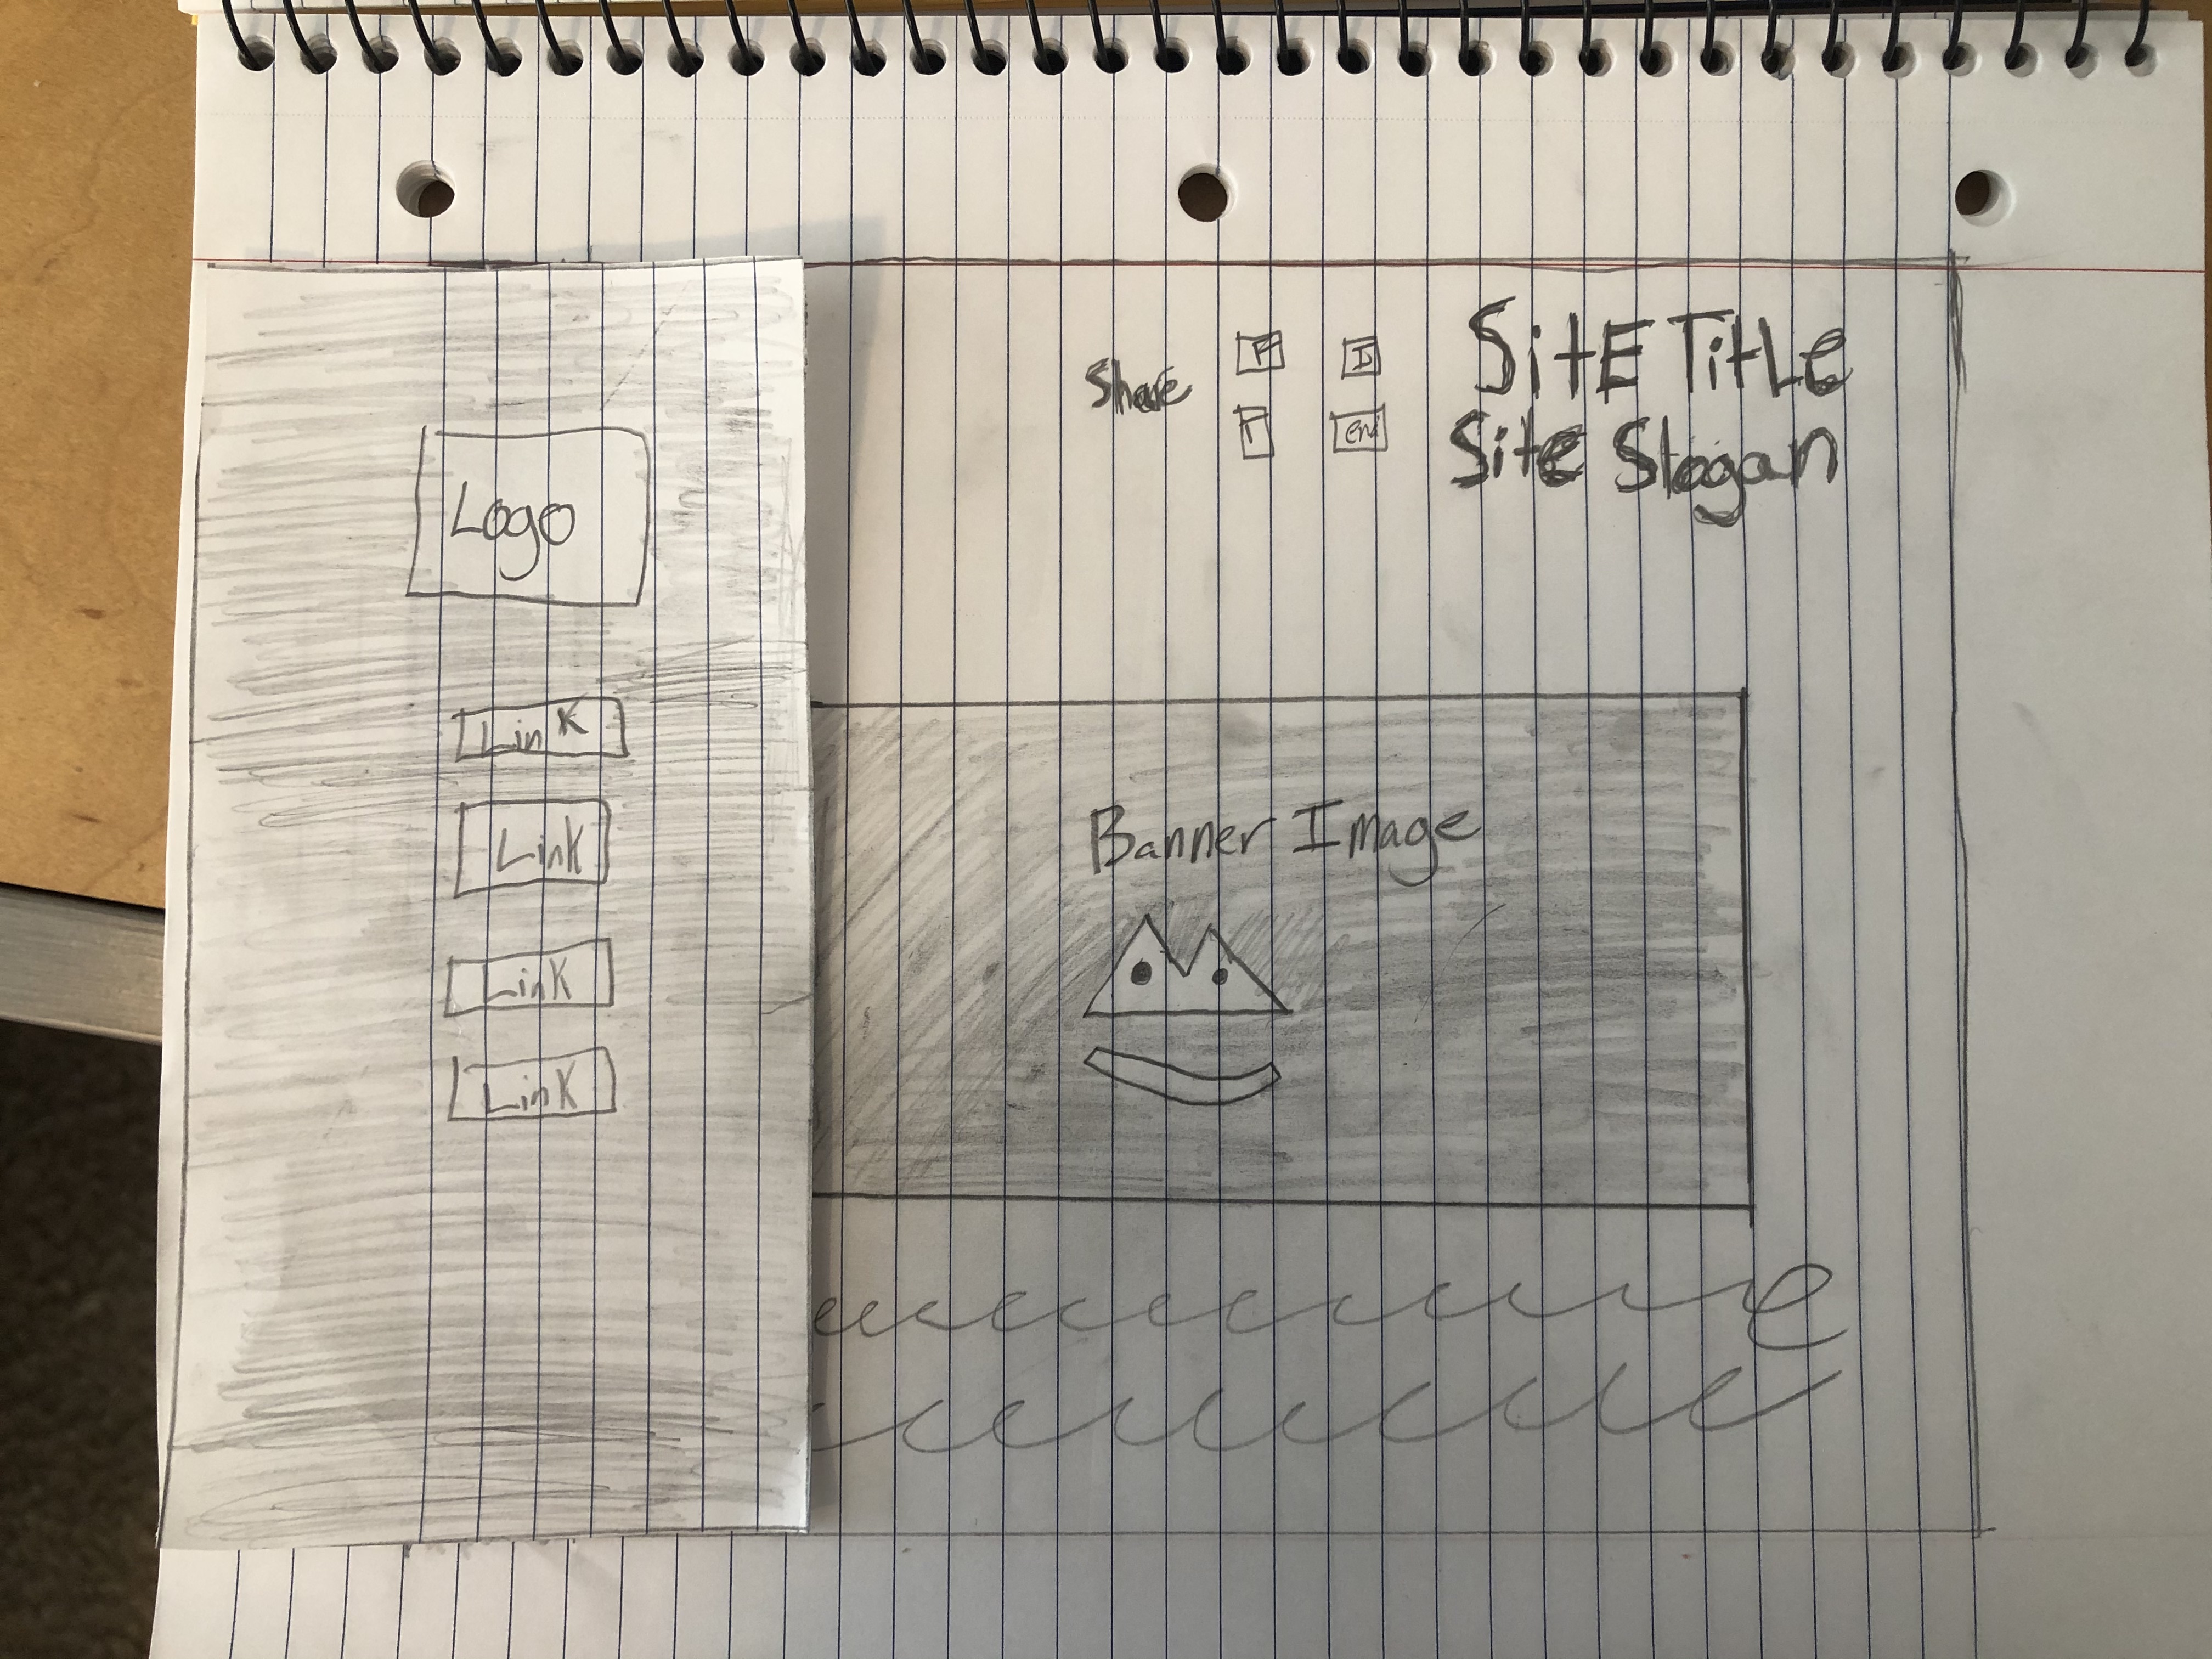 Logo
Link
Link
Link
Link
Share
F
I
T
SitE TitLe
Site Slogan
Banner Image